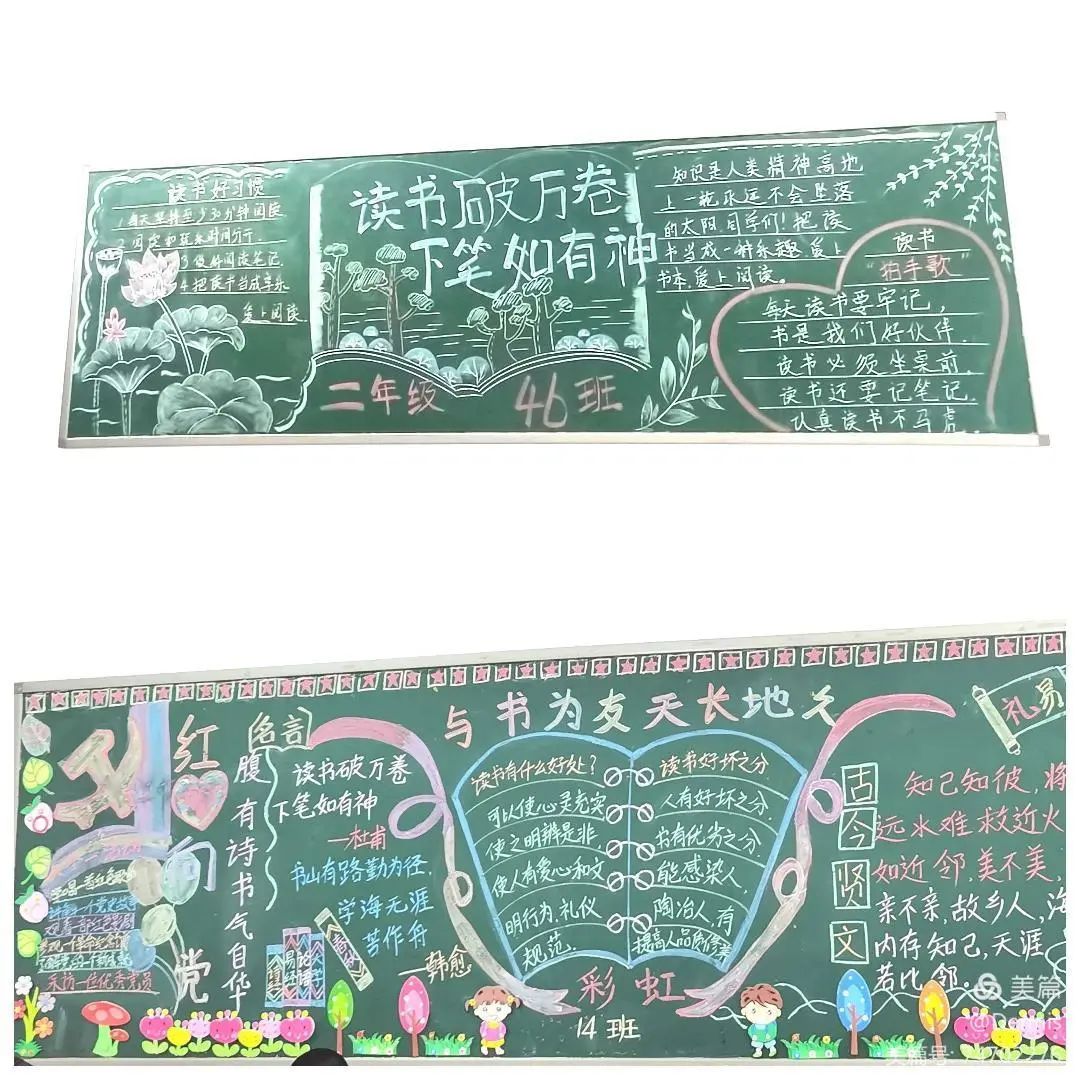 读书好习惯
1.每天坚持至少30分钟阅读
2.固定和玩乐时间分开.
3做好阅读笔记.
4.把读书当成享乐
爱上阅读
读书破万卷
下笔如有神
二年级 46班
知识是人类精神高地
上一轮永远不会坠落
的太阳,同学们!把读
书当成一种乐趣,爱上
书本,爱上阅读。
读书
"拍手歌"
每天读书要牢记,
书是我们好伙伴.
读书必须坐桌前,
读书还要记笔记.
认真读书不马虎
红
心
向
党
名言
腹有诗书气自华
读书破万卷
下笔如有神
—杜甫
书山有路勤为径,
学海无涯
苦作舟
—韩愈
论语
大学
春秋
与书为友天长地久
读书有什么好处?
可以使心灵充实
使之明辨是非,
使人有爱心和文
明行为,礼仪
规范.
读书好坏之分
人有好坏之分
书有优劣之分
能感染人,
陶冶人,有
提高人品质修养
彩虹
14班
礼易
古
今
贤
文
知己知彼,将
远水难救近火
如近邻,美不美,
亲不亲,故乡人,海
内存知己,天涯
若比邻.
美篇